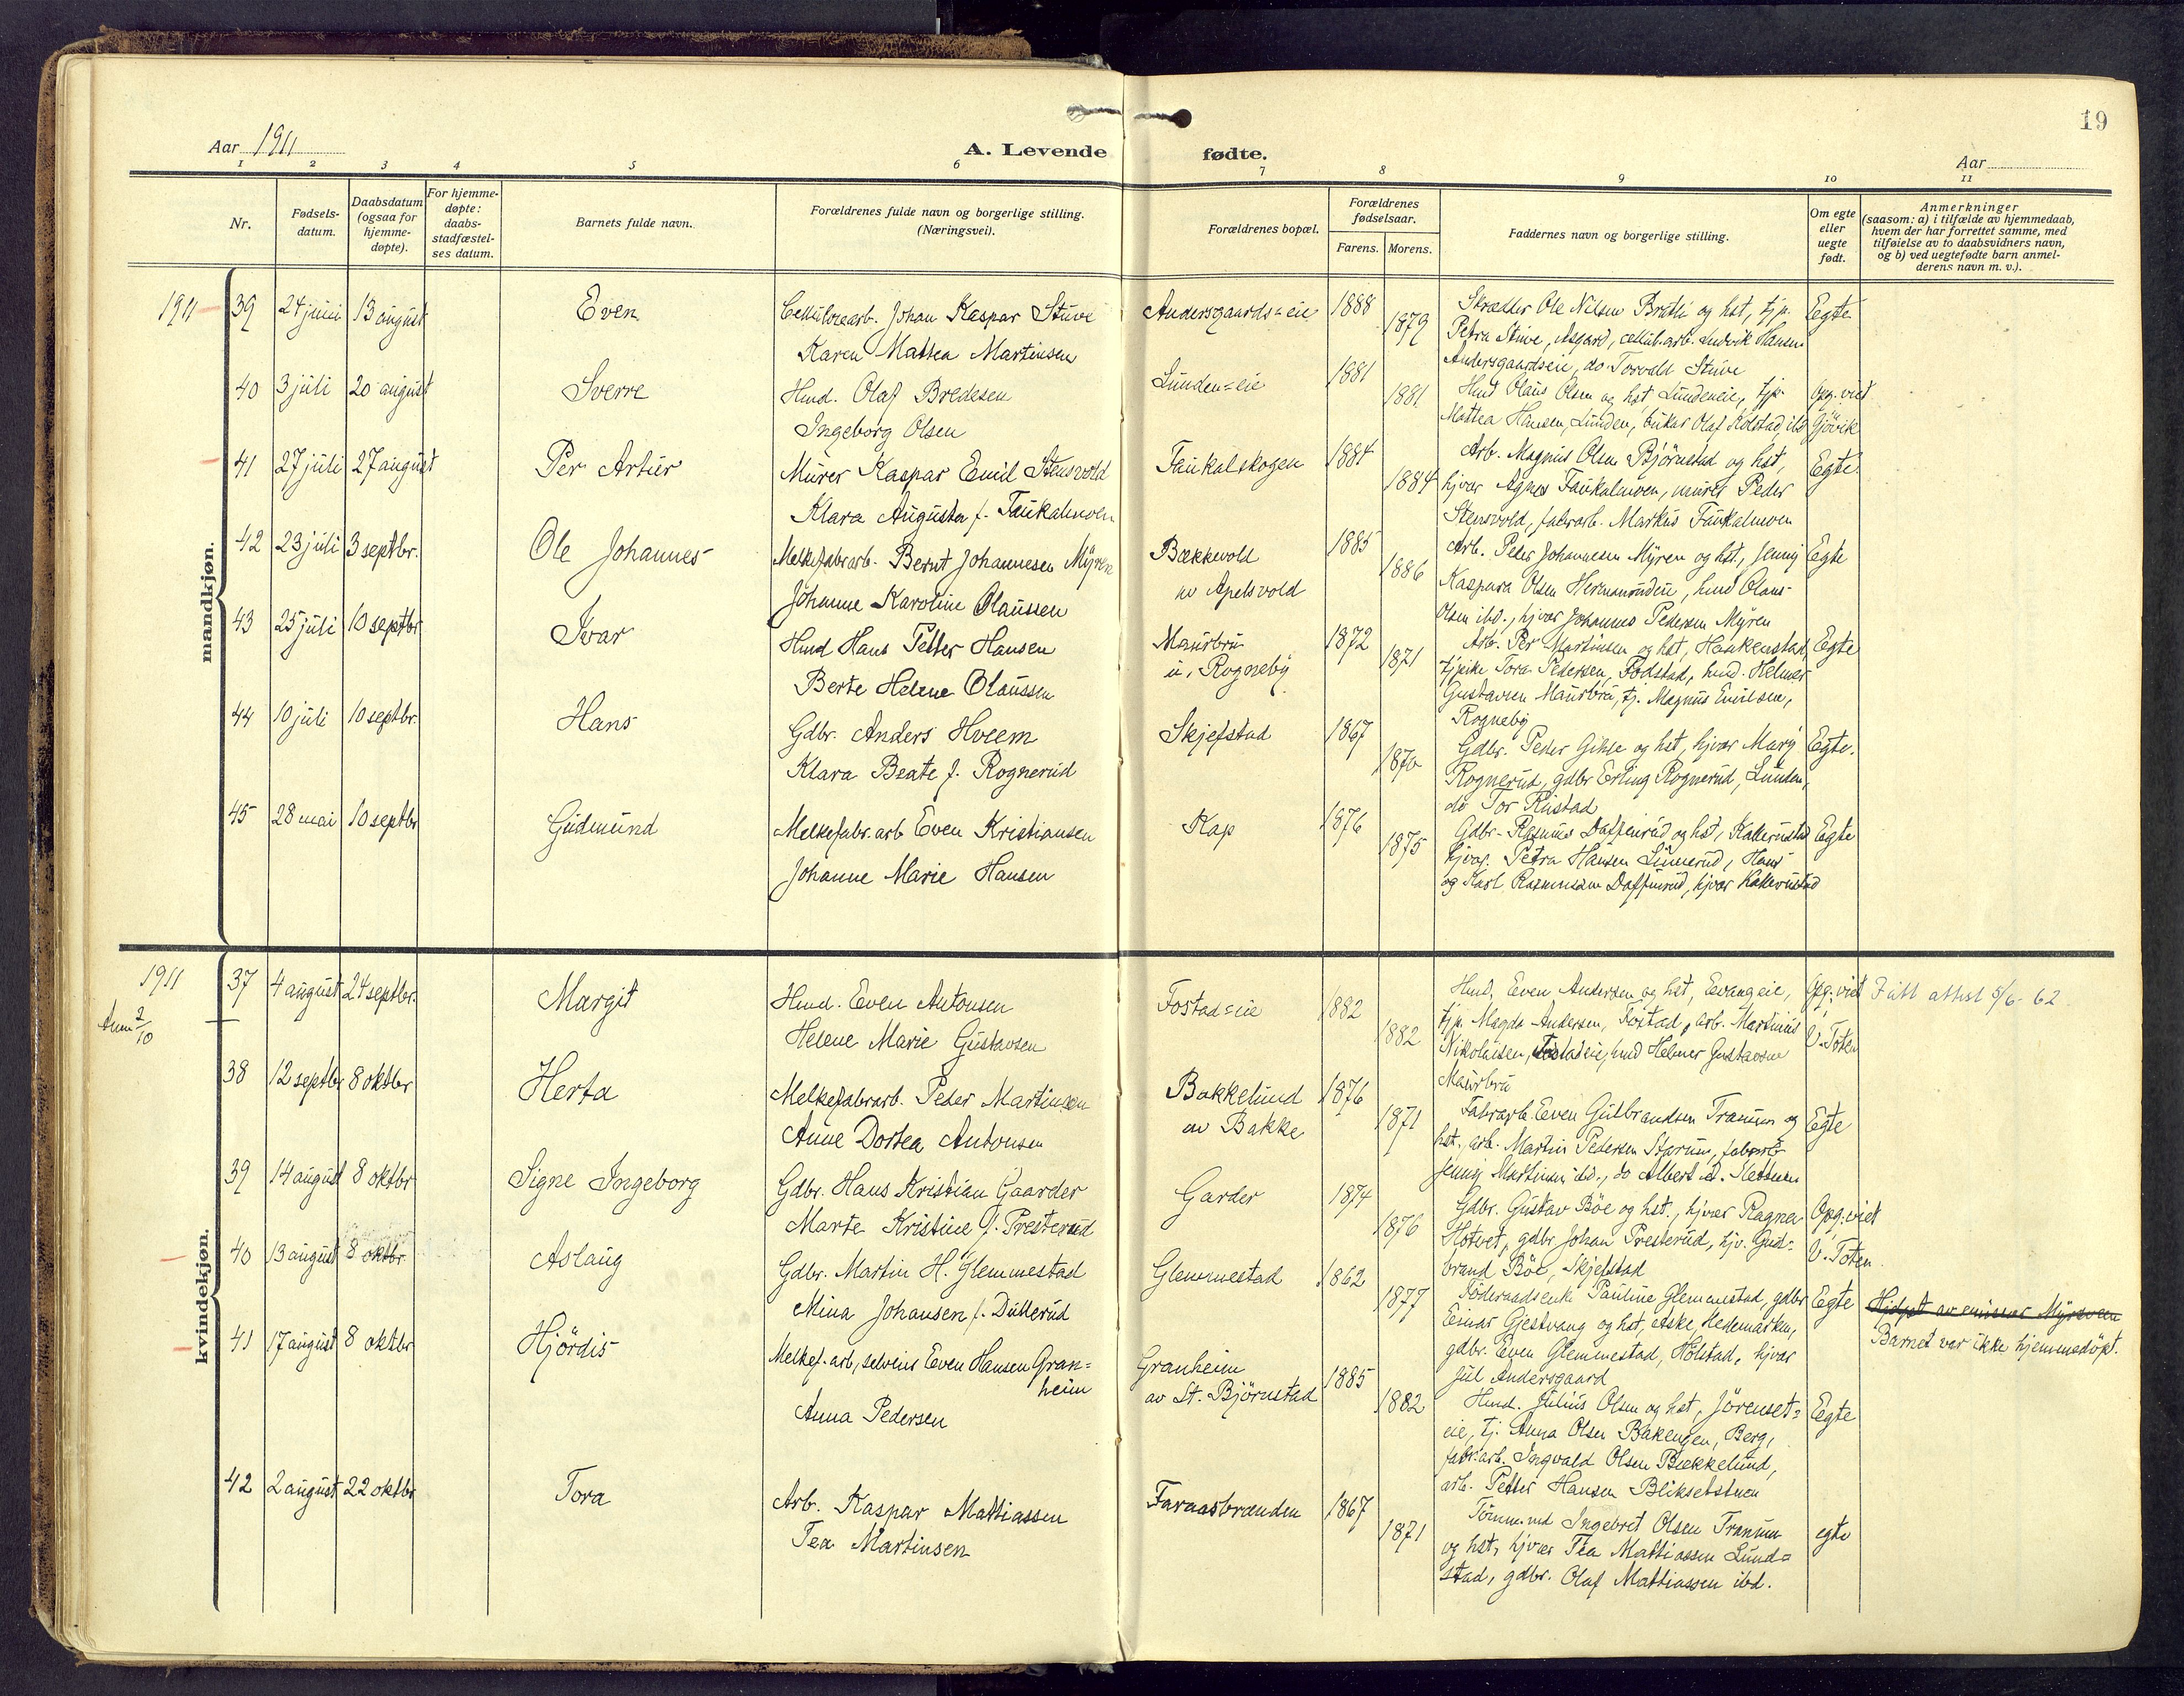 19
Aar 1911
A. Levende fødte.
Aar
1 2 3 4 5 6 7 8 9 10 11
Nr.
Fødsels-
datum.
Daabsdatum
(ogsaa for
hjemme-
døpte).
For hjemme-
døpte:
daabs-
stadfæstel-
ses datum.
Barnets fulde navn.
Forældrenes fulde navn og borgerlige stilling.
(Næringsvei).
Forældrenes bopæl.
Forældrenes
fødselsaar.
Farens. Morens.
Faddernes navn og borgerlige stilling.
Om egte
eller
uegte
født.
Anmerkninger
(saasom: a) i tilfælde av hjemmedaab,
hvem der har forrettet samme, med
tilføielse av to daabsvidners navn,
og b) ved uegtefødte barn anmel-
derens navn m. v.).
mandkjøn.
1911 39 24 juni 13 august Even
Celluloearb. Johan Kaspar Stuve
Karen Mattea Martinsen
Andersgaards=eie 1888 1879
Skrædder Ole Nilsen Bråti og hst, tjp.
Petra Stuve, Asgard, cellul.arb. Ludvik Hansen
Andersgaardseie, do Torvald Stuve
Egte
40 3 juli 20 august Sverre
Hmd. Olaf Bredesen
Ingeborg Olsen
Lunden=eie 1881 1881
Hmd Olaus Olsen og hst Lundeneie, tjp.
Mattea Hansen, Lunden, Olaf Kolstad ibd
Opg. viet
Gjövik
41 27 juli 27 august Per Artur
Murer Kaspar Emil Stensvold
Klara Augusta f. Faukalmoen
Faukalskogen 1884 1884
Arb. Magnus Olsen Björnstad og hst,
hjvær Agnes Faukalmoen, murer Peder
Stensvold, fabrarb. Markus Faukalmoen
Egte
42 23 juli 3 septbr. Ole Johannes
Melkefabrarb. Bernt Johannesen Myren
Johanne Karoline Olaussen
Bækkevold
av Apelsvold
1885 1886
Arb. Peder Johannesen Myren og hst, Jenny
Kaspara Olsen Hermanrudeie, hmd Olaus
Olsen ibd., hjvær Johannes Pedersen Myren
Egte
43 25 juli 10 septbr Ivar
Hmd Hans Petter Hansen
Berte Helene Olaussen
Maurbru
u. Rogneby
1872 1871
Arb. Per Martinsen og hst, Haukenstad,
tjpike Tora Pedersen, Fodstad, hmd. Helmer
Gustavsen Maurbru, tj. Magnus Emilsen,
Rogneby
Egte
44 10 juli 10 septbr. Hans
Gdbr. Anders Hveem
Klara Beate f. Rognerud
Skjefstad 1867 1870
Gdbr. Peder Gihle og hst, hjvær Mary
Rognerud, gdbr Erling Rognerud, Lunden,
do Tor Rustad
Egte.
45 28 mai 10 septbr Gudmund
Melkefabr.arb Even Kristiansen
Johanne Marie Hansen
Kap 1876 1875
Gdbr. Rasmus Daffinrud og hst, Kallerustad
hjvær. Petra Hansen Linnerud, Hans
og Karl Rasmussen Daffinrud, hjvær Kallerustad
Egte
kvindekjøn.
1911
Anm 2/10
37 4 august 24 septbr. Margit
Hmd. Even Antonsen
Helene Marie Gustavsen
Fostad=eie 1882 1882
Hmd, Even Andersen og hst, Eevangeie,
tjp. Magda Andersen, Fostad, arb. Martinius
Nikolaisen, Fostadeie, hmd Helmer Gustavsen
Maurbru
Opg. viet
V. Toten
Fått attest 8/6-62
38 12 septbr 8 oktbr Herta
Melkefabrarb. Peder Martinsen
Anne Dortea Antonsen
Bakkelund
av Bakke
1876 1871
Fabrarb. Even Gulbrandsen Tranum og
hst., arb. Martin Pedersen Starum, fabrarb
Jenny Martinsen ibd., do Albert
Egte
39 14 august 8 oktbr Signe Ingeborg
Gdbr. Hans Kristian Gaarder
Marte Kristine f. Presterud
Garder 1874 1876
Gdbr. Gustav Böe og hst., hjvær Ragna
Hotvet, gdbr Johan Presterud, hjv. Gud=
brand Böe, Skjefstad
Opg. viet
V. Toten
40 13 august 8 oktbr. Aslaug
Gdbr. Martin H. Glemmestad
Mina Johansen f. Dullerud
Glemmestad 1862 1877
Föderaadsenke Pauline Glemmestad, gdbr
Einar Gjestvang og hst, Aske, Hedemarken,
gdbr. Even Glemmestad, Holstad, hjvær
Jul Andersgaard
Egte
Hjdpt av emissær Myrveen
Barnet var ikke hjemmedöpt.
41 17 august 8 oktbr Hjördis
Melkef.arb, selveier Even Hansen Gran=
heim
Anna Pedersen
Granheim
av St. Björnstad
1885 1882
Hmd. Julius Olsen og hst, Jörenset=
eie, tj. Anna Olsen Bakengen, Berg,
fabr.arb. Ingvald Olsen Bækkelund,
arb. Petter Hansen Bliksetstuen
Egte
42 2 august 22 oktbr Tora
Arb. Kaspar Mattiassen
Tea Martinsen
Faraasbrænden 1867 1871
Tömm.md Ingebret Olsen Tranum
og hst, hjvær Tea Mattiassen Lund=
stad, gdbr. Olaf Mattiassen ibd.
egte